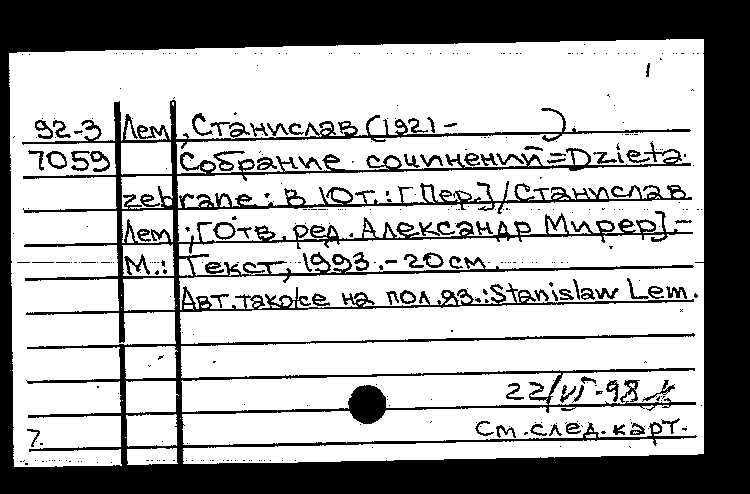 1
92-3 Лем, Станислав (1921 - ).
7059 Собрание сочинений = Dzieta
zebrane : В 10т. : [Пер.] / Станислав
Лем ; [Отв. ред. Александр Мирер]. -
М. : Текст, 1993. - 20 см.
Авт. также на пол. яз. : Stanislaw Lem.
22/VI-98
7. См. след. карт.